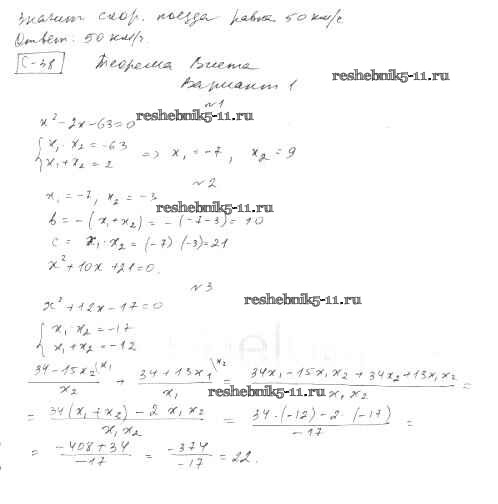 Значит скор. поезда равна 50 км/ч.
Ответ: 50 км/ч.
С-38 Теорема Виета
reshebnik5-11.ru
Вариант 1
№1
reshebnik5-11.ru
x²-2x-63=0
{x₁·x₂=-63
{x₁+x₂=2 => x₁=-7, x₂=9
№2
x₁=-7, x₂=-3
reshebnik5-11.ru
b=-(x₁+x₂)=-(-7-3)=10
c= x₁·x₂=(-7)(-3)=21
x²+10x+21=0.
№3
x²+12x-17=0
reshebnik5-11.ru
{x₁·x₂=-17
{x₁+x₂=-12
(34-15x₂)/x₂ \x₁ + (34+13x₁)/x₁ \x₂ = (34x₁-15x₁x₂+34x₂+13x₁x₂)/(x₁x₂) =
reshebnik5-11.ru
= (34(x₁+x₂)-2x₁x₂)/(x₁x₂) = (34·(-12)-2·(-17))/(-17) =
= (-408+34)/(-17) = (-374)/(-17) = 22.